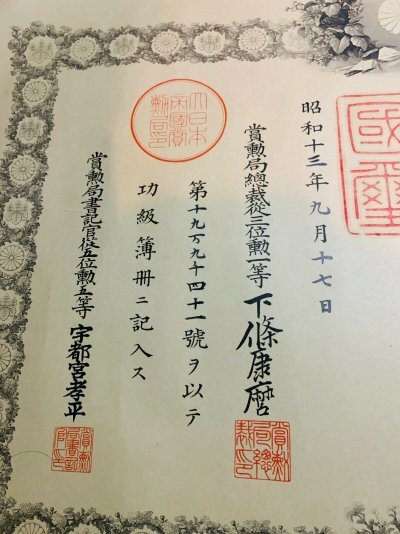 昭和十三年九月十七日
國璽
賞勲局總裁從三位勲一等 下條康麿
賞勲局總裁印
第十九万九千四十一號ヲ以テ
功級簿册ニ記入ス
大日本帝國賞勲局印
賞勲局書記官從五位勲五等 宇都宮孝平
賞勲局書記官印